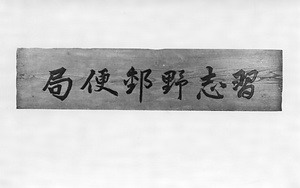 習志野郵便局